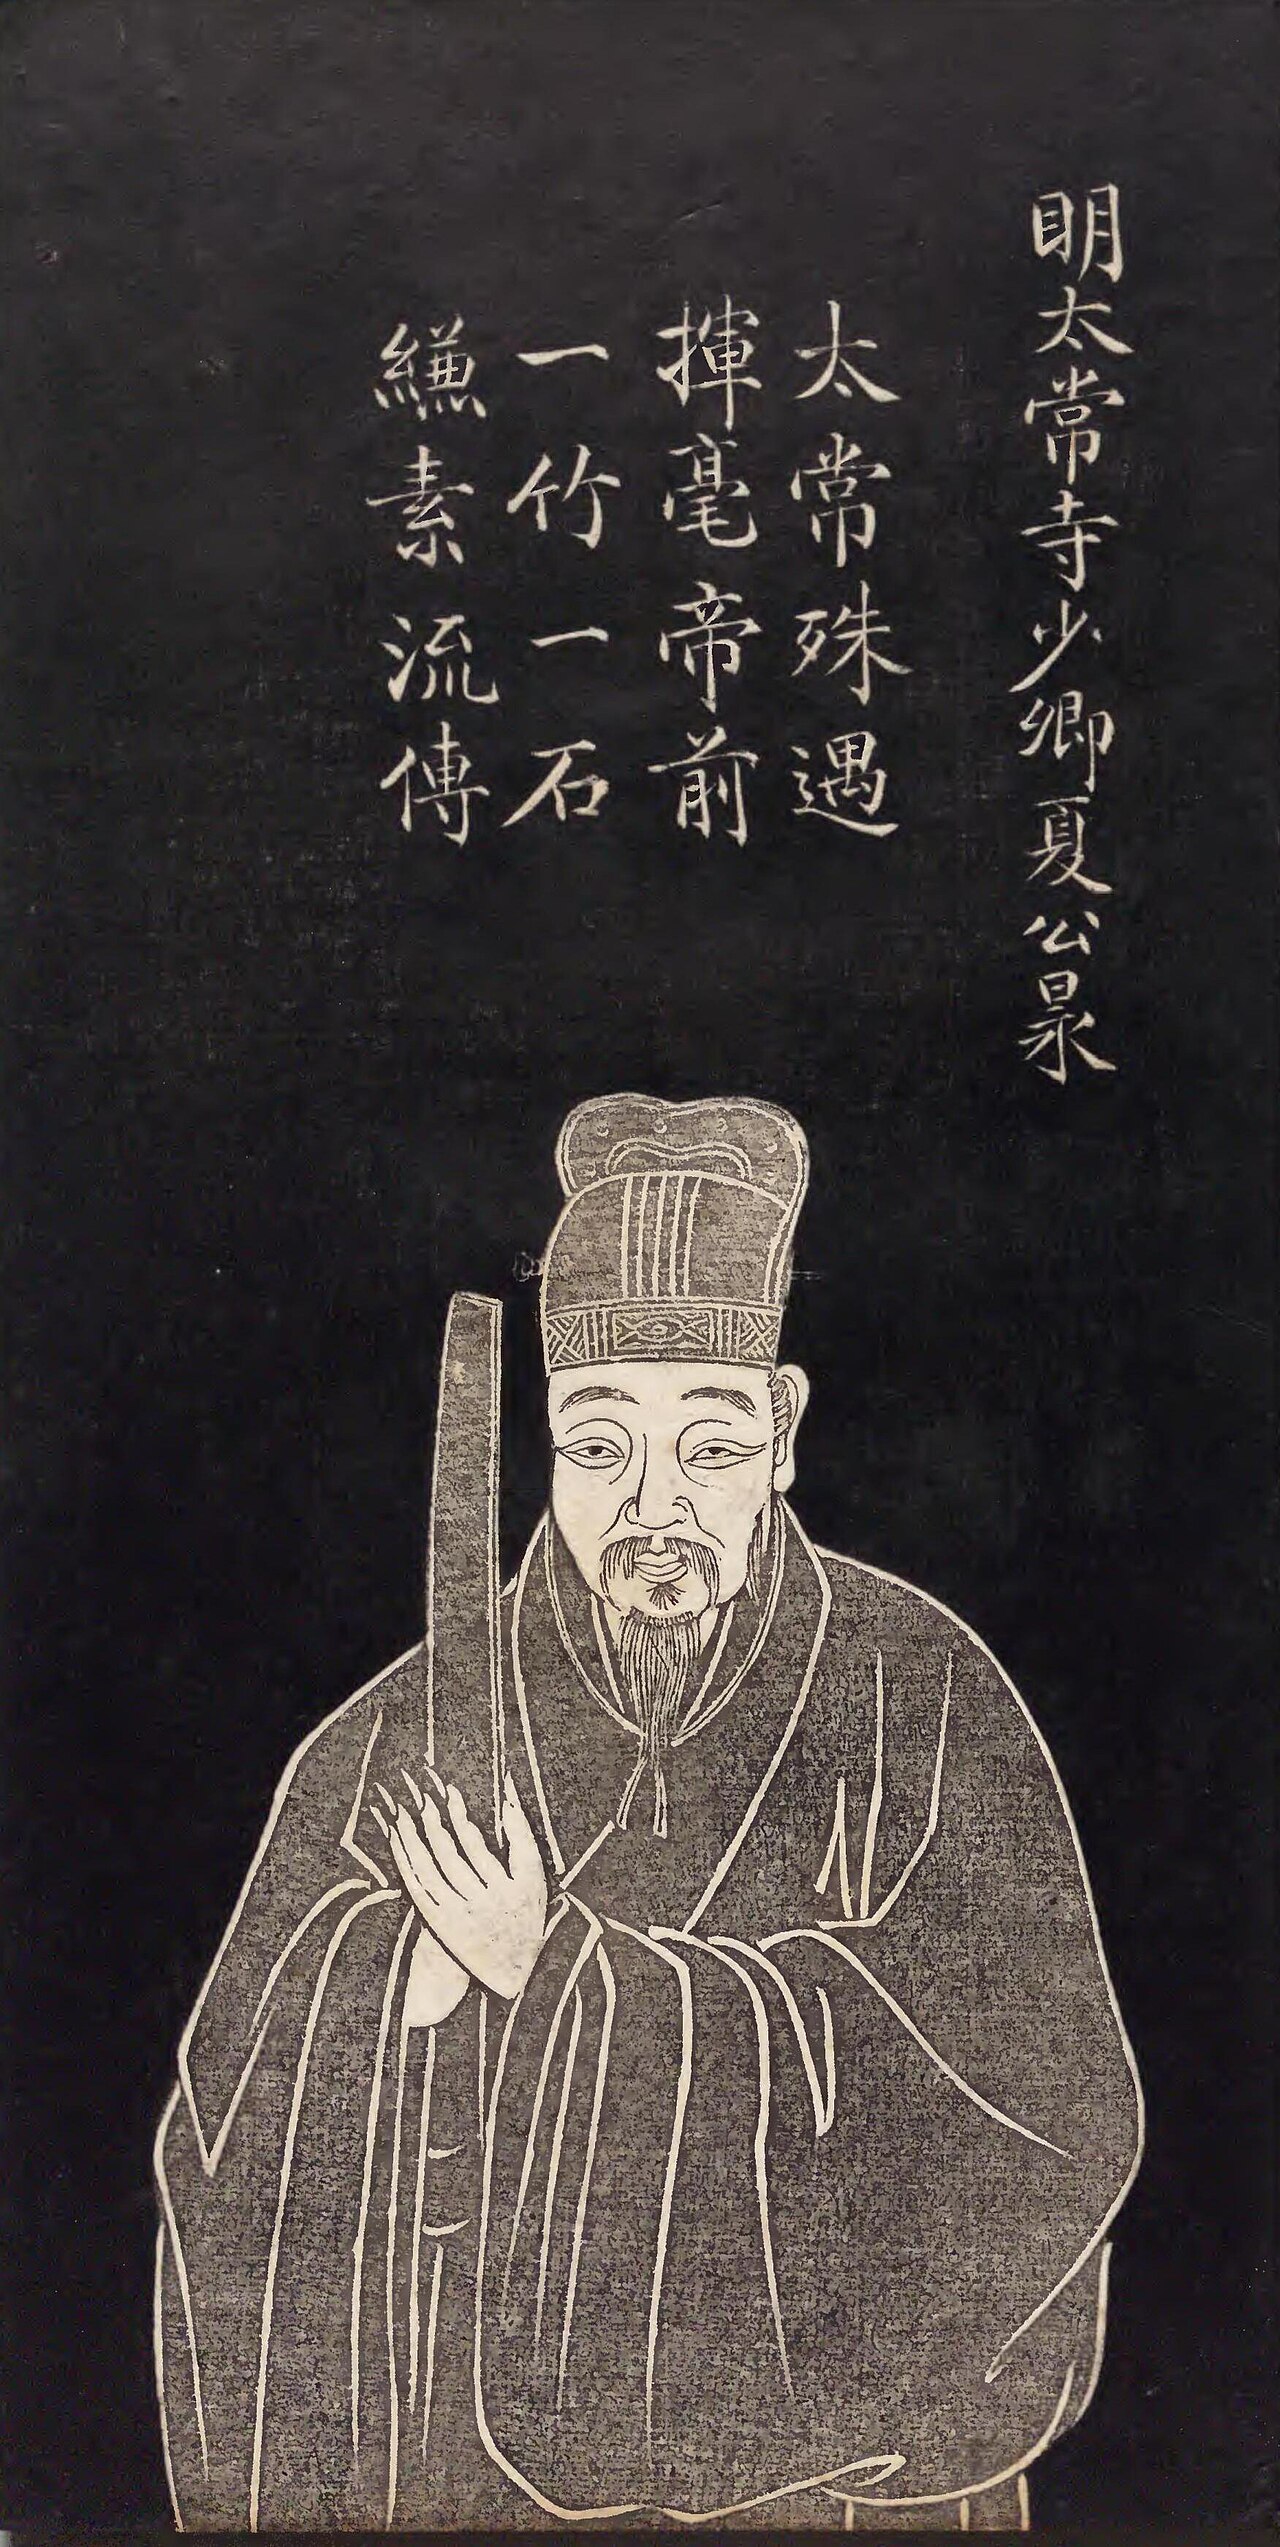 明太常寺少卿夏公昶
太常殊遇
揮毫帝前
一竹一石
縑素流傳